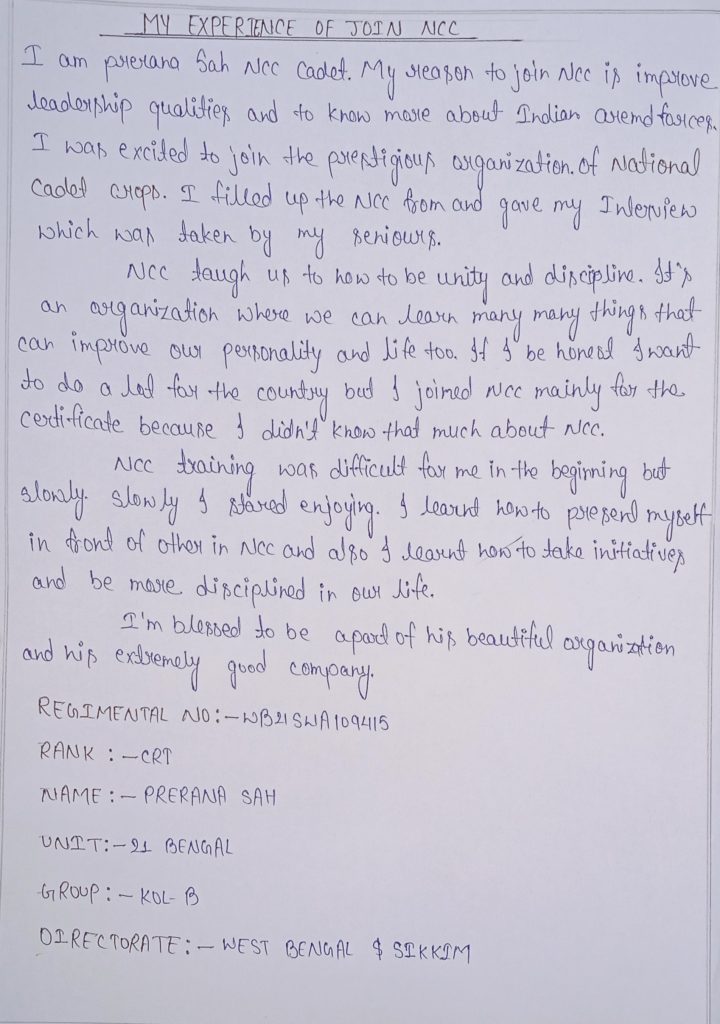 MY EXPERIENCE OF JOIN NCC
I am prerana Sah NCC Cadet. My reason to join NCC is improve
leadership qualities and to know more about Indian aremd farces.
I was excited to join the prestigious organization. of National
Cadet crops. I filled up the NCC from and gave my Interview
which was taken by my seniours.
NCC taugh us to how to be unity and discipline. It's
an organization where we can learn many many things that
can improve our personality and life too. If I be honest I want
to do a lot for the country but I joined NCC mainly for the
certificate because I didn't know that much about NCC.
NCC training was difficult for me in the beginning but
slowly. slowly I stared enjoying. I learnt how to present myself
in front of other in NCC and also I learnt how to take initiatives
and be more disciplined in our life.
I'm blessed to be apart of his beautiful organization
and his extremely good company.
REGIMENTAL NO:-WB21SWA109415
RANK :-CRT
NAME :- PRERANA SAH
UNIT:-21 BENGAL
GROUP :- KOL- B
DIRECTORATE :- WEST BENGAL $ SIKKIM